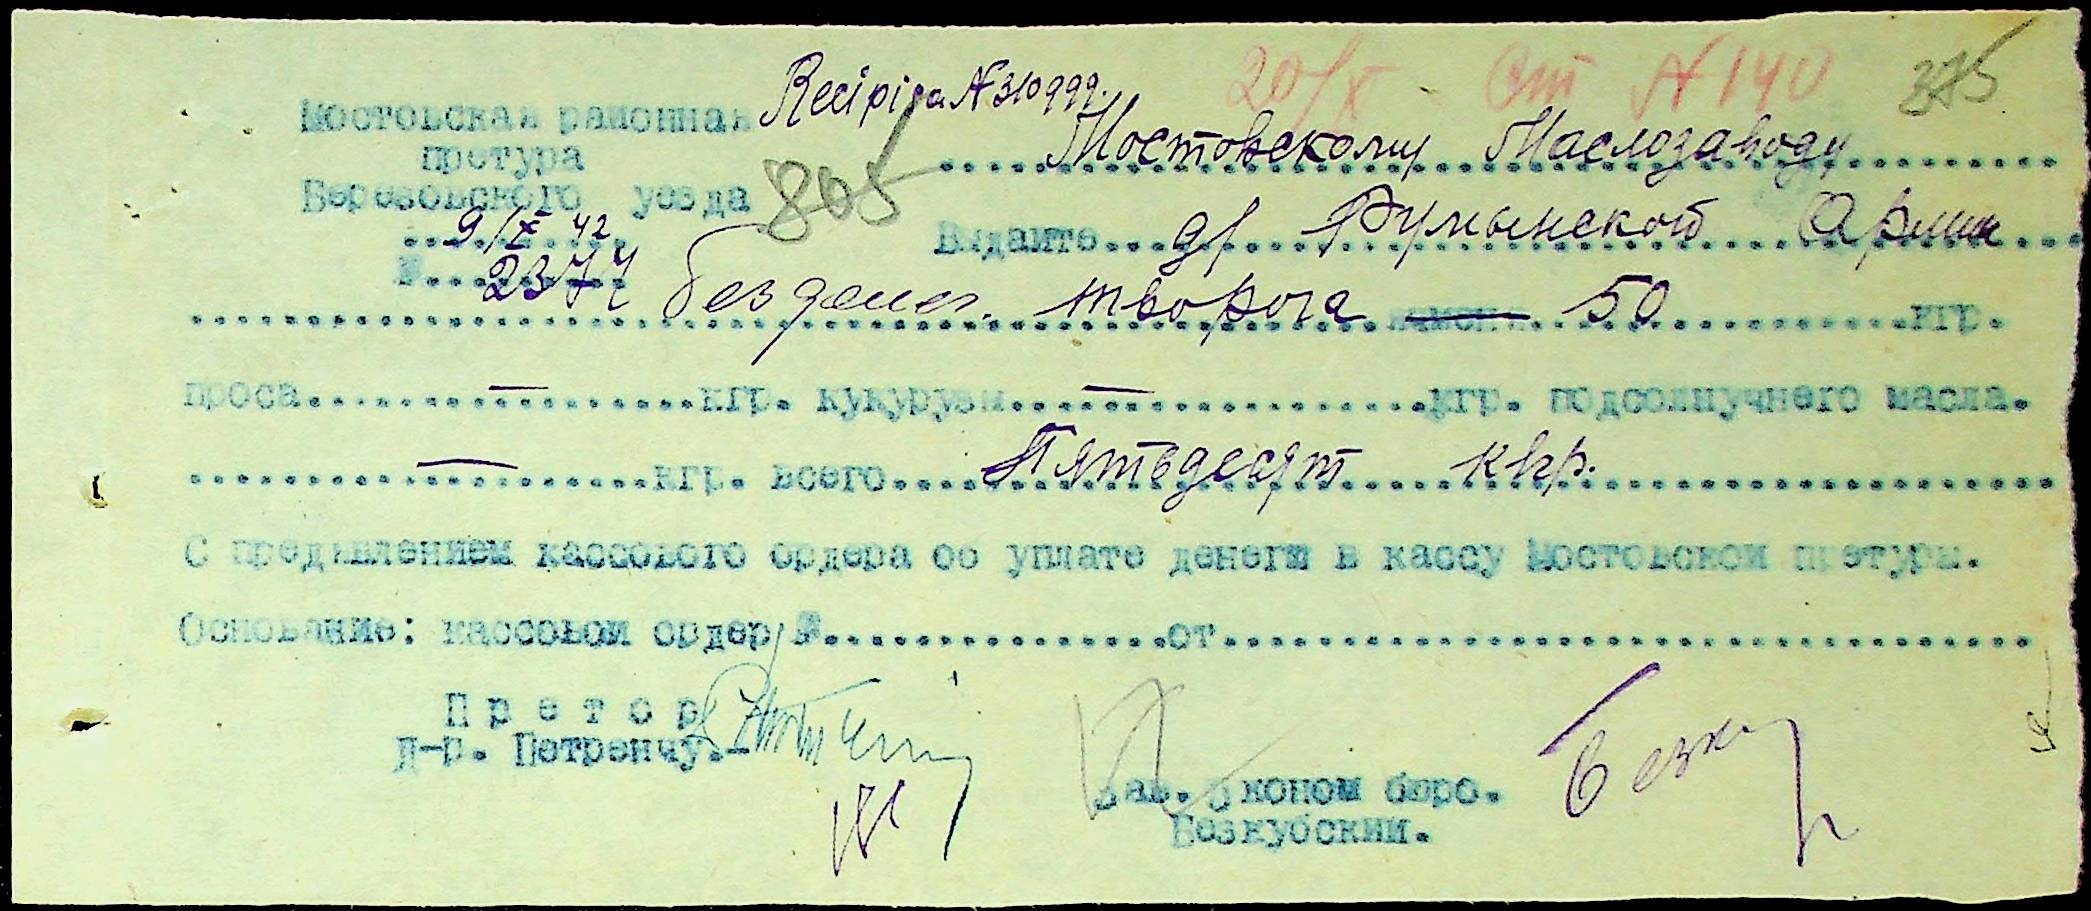 20/X От № 140 375
Recipisa № 310999.
Мостовская районная
претура
Березовского уезда 805
9/X 42
№ 2374
Мостовскому Маслозаводу
Выдайте дл Румынской Армии
без денег. творога 50 кгр.
проса — кгр. кукурузы — кгр. подсолнучнего масла.
— кгр. всего Пятьдесят кгр.
С предявлением кассового ордера об уплате денегы в кассу Мостовской претуры.
Основание: кассовой ордер № от
Претор
д-р. Петренчу.
Зав. Эконом бюро.
Безкубский.
Безку